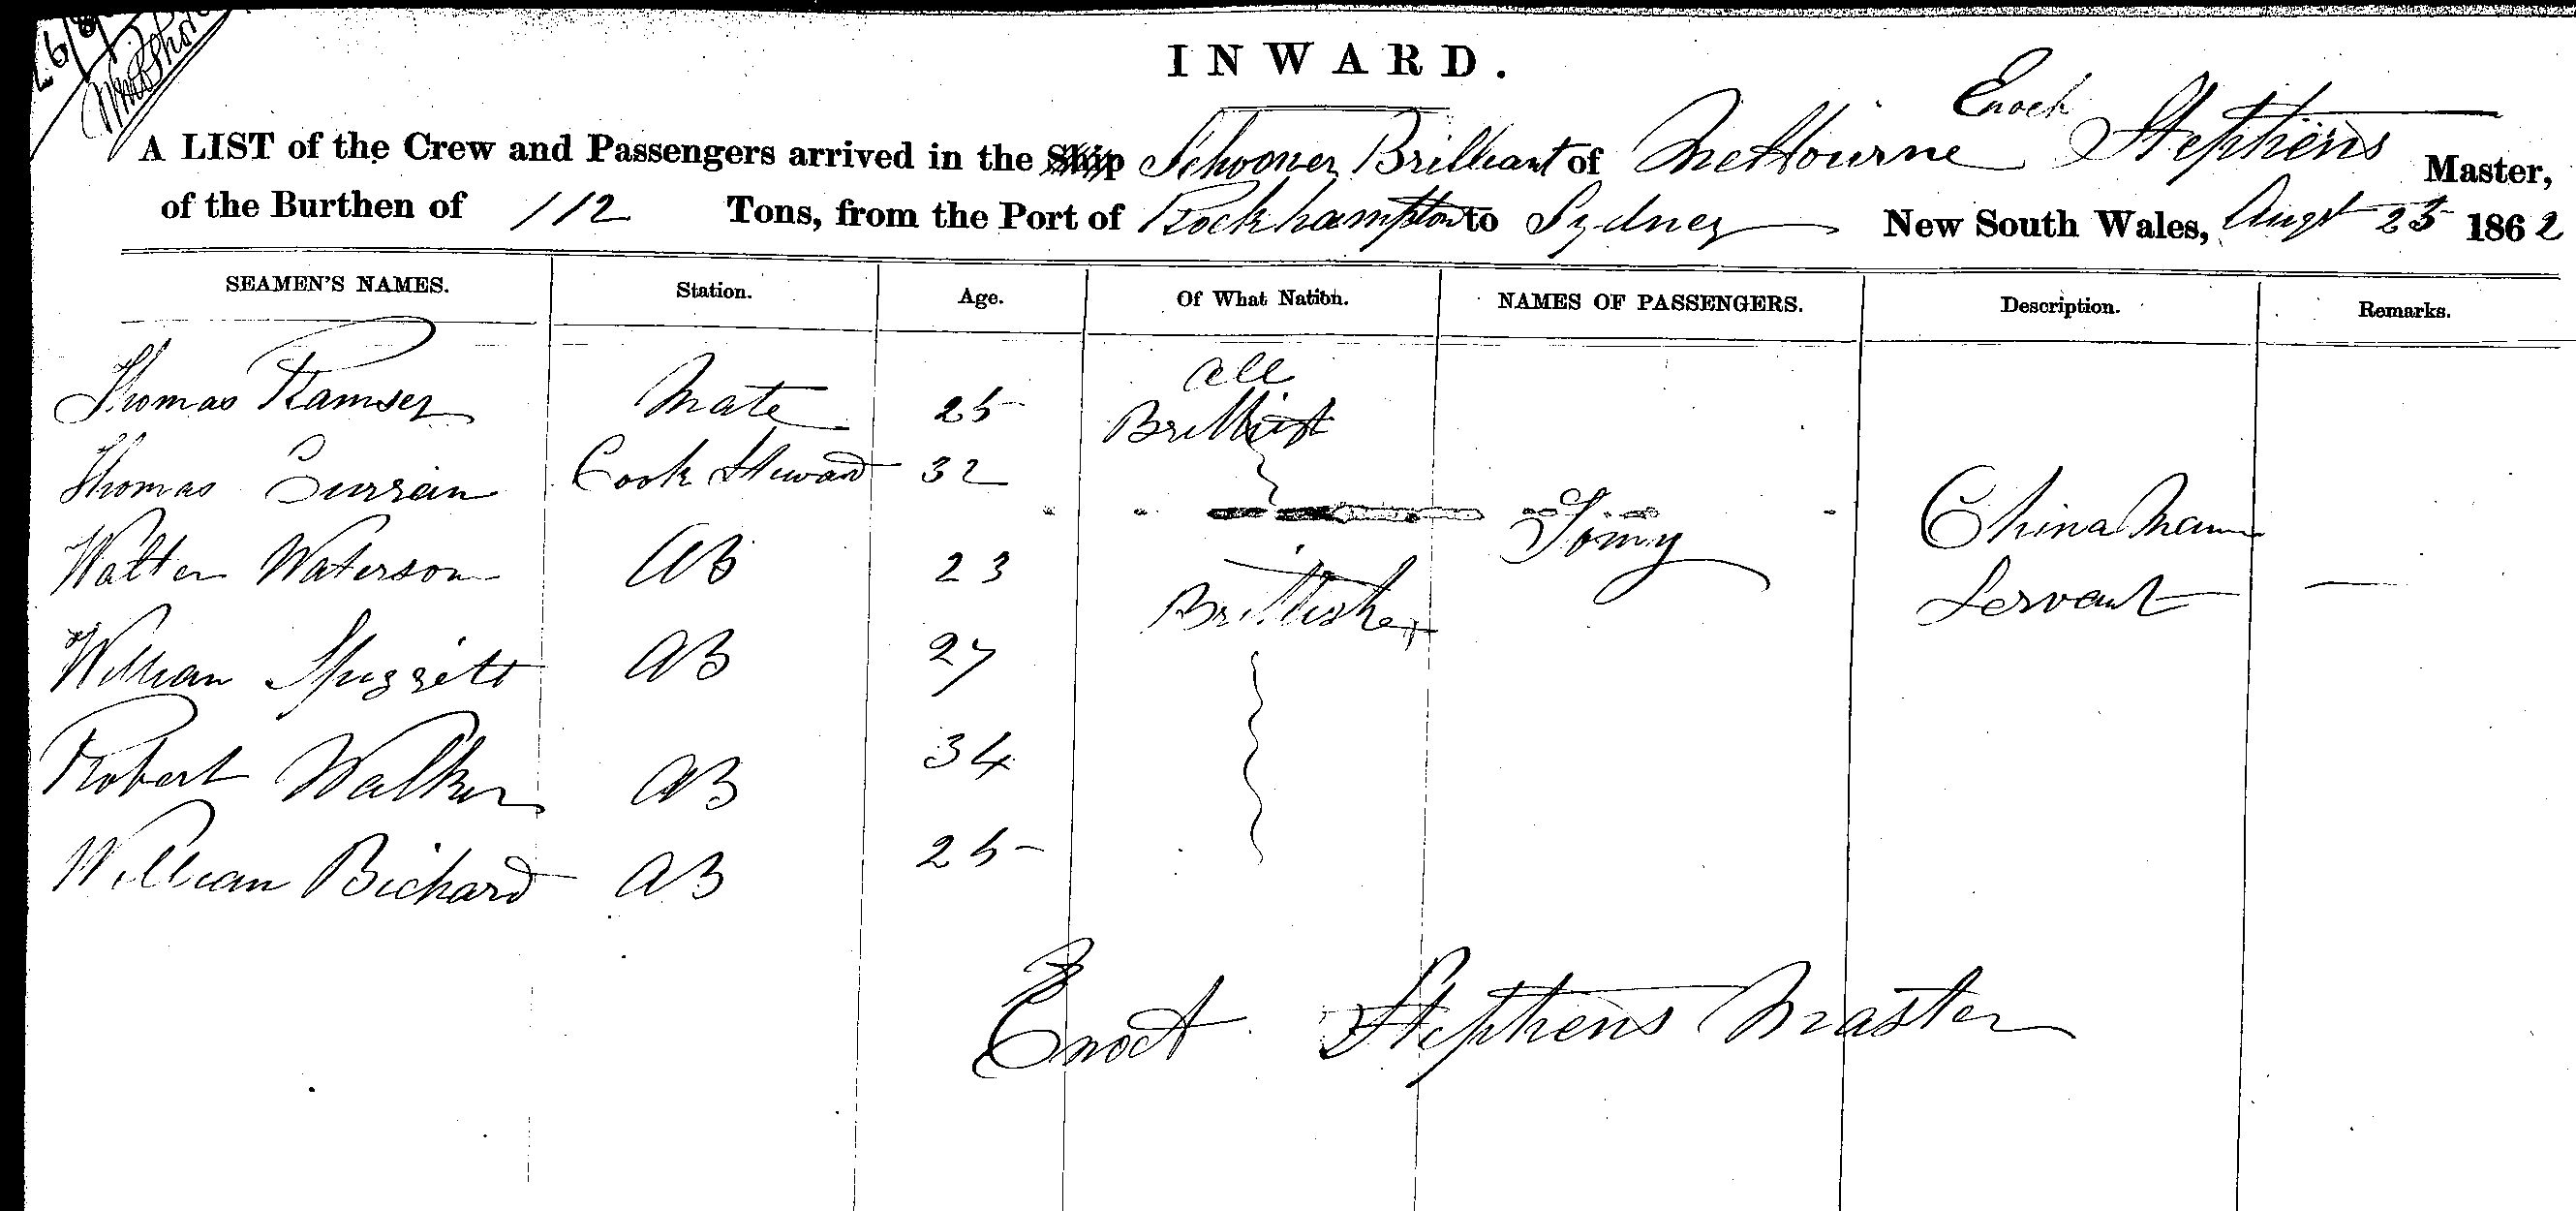 INWARD.
A LIST of the Crew and Passengers arrived in the Ship Schooner Brilliant of Melbourne Enoch Stephens Master,
of the Burthen of 112 Tons, from the Port of Rockhampton to Sydney New South Wales, Augt 23 1862
SEAMEN'S NAMES. Station. Age. Of What Nation. NAMES OF PASSENGERS. Description. Remarks.
Thomas Ramsey Mate 25 all
Thomas Curran Cook Steward 32
Walter Waterson AB 23 Tomy China Man
Brittish Servant —
William AB 27
Robert Walker AB 34
William Bichard AB 25
Enoch Stephens Master